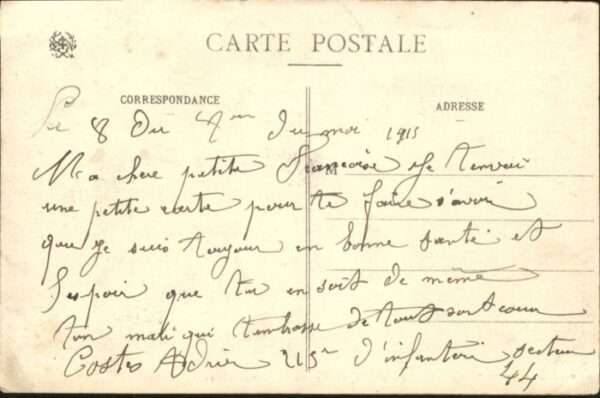 CARTE POSTALE
CORRESPONDANCE
ADRESSE
Le 8 Du 4em du moi 1915
M
Ma chere petite Françoise Je tenvoi
une petite carte pour te faire savoir
que je suis toujour en bonne santé et
Jespoir que tu en soit de même
ton mari qui tembrasse de tout sont coeur
Costes Adrien 215e d'infanteri secteur
44